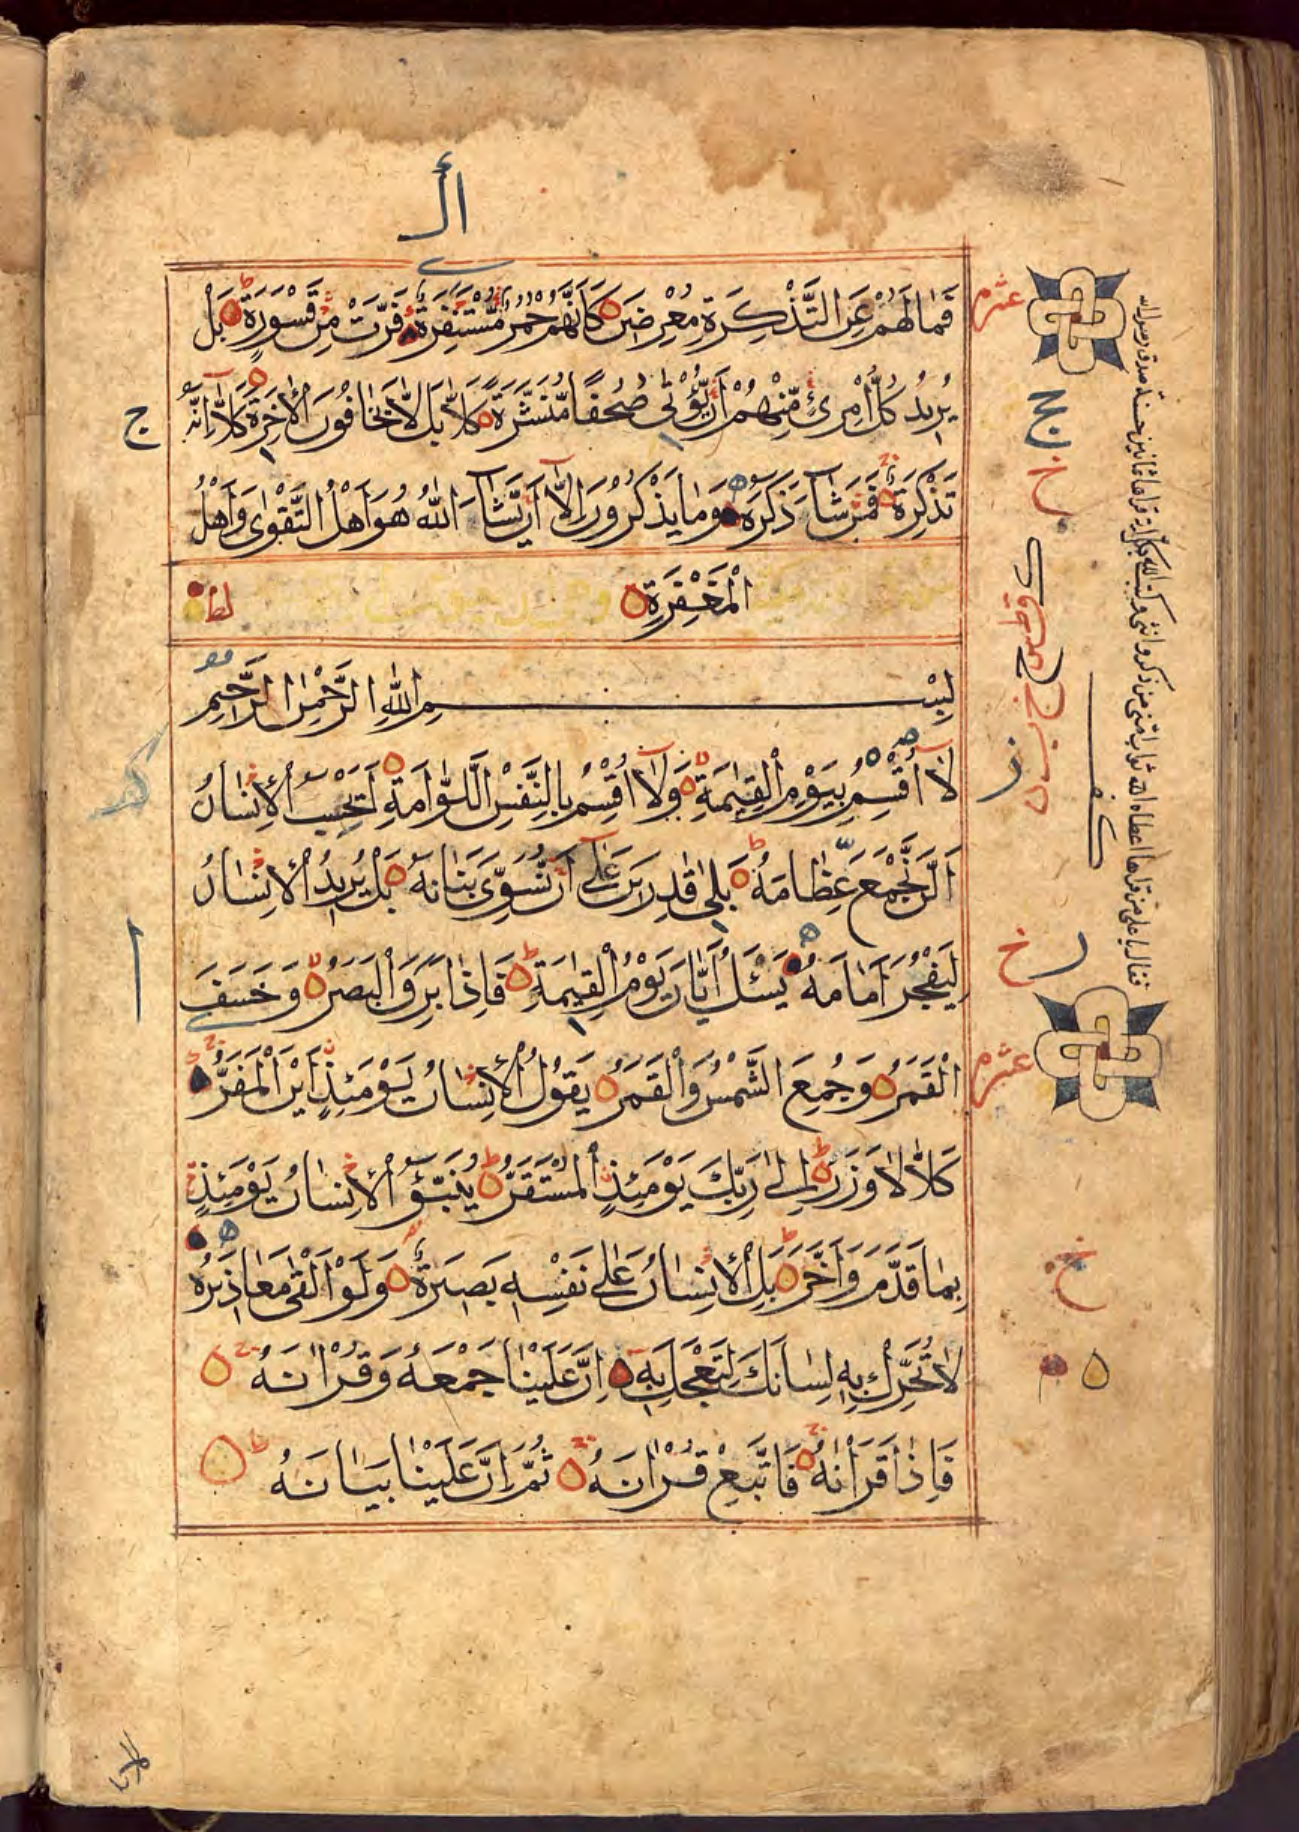 فَمَا لَهُمْ عَنِ التَّذْكِرَةِ مُعْرِضِينَ كَاَنَّهُمْ حُمُرٌ مُّسْتَنْفِرَةٌ فَرَّتْ مِنْ قَسْوَرَةٍ بَلْ
يُرِيدُ كُلُّ امْرِئٍ مِّنْهُمْ اَنْ يُّؤْتٰى صُحُفًا مُّنَشَّرَةً كَلَّا بَلْ لَّا يَخَافُونَ الْاٰخِرَةَ كَلَّا اِنَّهُ
تَذْكِرَةٌ فَمَنْ شَآءَ ذَكَرَهُ وَمَا يَذْكُرُونَ اِلَّا اَنْ يَّشَآءَ اللّٰهُ هُوَ اَهْلُ التَّقْوٰى وَاَهْلُ
الْمَغْفِرَةِ
بِسْمِ اللّٰهِ الرَّحْمٰنِ الرَّحِيمِ
لَآ اُقْسِمُ بِيَوْمِ الْقِيٰمَةِ وَلَآ اُقْسِمُ بِالنَّفْسِ اللَّوَّامَةِ اَيَحْسَبُ الْاِنْسَانُ
اَلَّنْ نَّجْمَعَ عِظَامَهُ بَلٰى قٰدِرِينَ عَلٰٓى اَنْ نُّسَوِّىَ بَنَانَهُ بَلْ يُرِيدُ الْاِنْسَانُ
لِيَفْجُرَ اَمَامَهُ يَسْـَٔلُ اَيَّانَ يَوْمُ الْقِيٰمَةِ فَاِذَا بَرِقَ الْبَصَرُ وَخَسَفَ
الْقَمَرُ وَجُمِعَ الشَّمْسُ وَالْقَمَرُ يَقُولُ الْاِنْسَانُ يَوْمَئِذٍ اَيْنَ الْمَفَرُّ
كَلَّا لَا وَزَرَ اِلٰى رَبِّكَ يَوْمَئِذٍ الْمُسْتَقَرُّ يُنَبَّؤُ الْاِنْسَانُ يَوْمَئِذٍ
بِمَا قَدَّمَ وَاَخَّرَ بَلِ الْاِنْسَانُ عَلٰى نَفْسِهٖ بَصِيرَةٌ وَلَوْ اَلْقٰى مَعَاذِيرَهُ
لَا تُحَرِّكْ بِهٖ لِسَانَكَ لِتَعْجَلَ بِهٖ اِنَّ عَلَيْنَا جَمْعَهُ وَقُرْاٰنَهُ
فَاِذَا قَرَاْنٰهُ فَاتَّبِعْ قُرْاٰنَهُ ثُمَّ اِنَّ عَلَيْنَا بَيَانَهُ